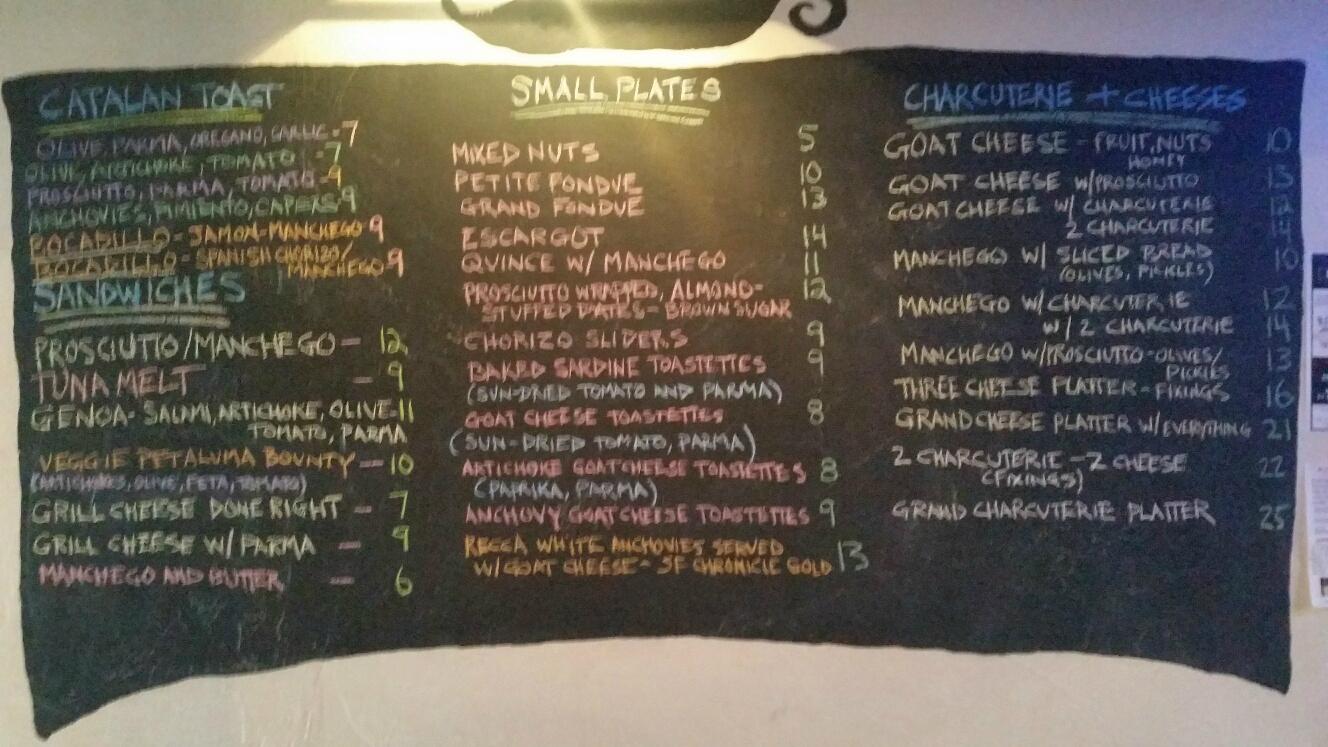 CATALAN TOAST
OLIVE, PARMA, OREGANO, GARLIC - 7
OLIVE, ARTICHOKE, TOMATO - 7
PROSCIUTTO, PARMA, TOMATO - 9
ANCHOVIES, PIMIENTO, CAPERS - 9
BOCADILLO - JAMON-MANCHEGO 9
BOCADILLO - SPANISH CHORIZO/
MANCHEGO - 9
SANDWICHES
PROSCIUTTO/MANCHEGO - 12
TUNA MELT - 9
GENOA - SALAMI, ARTICHOKE, OLIVE - 11
TOMATO, PARMA
VEGGIE PETALUMA BOUNTY - 10
(ARTICHOKES, OLIVE, FETA, TOMATO)
GRILL CHEESE DONE RIGHT - 7
GRILL CHEESE W/ PARMA - 9
MANCHEGO AND BUTTER - 6
SMALL PLATES
MIXED NUTS 5
PETITE FONDUE 10
GRAND FONDUE 13
ESCARGOT 14
QUINCE W/ MANCHEGO 11
PROSCIUTTO WRAPPED, ALMOND- 12
STUFFED DATES - BROWN SUGAR
CHORIZO SLIDERS 9
BAKED SARDINE TOASTETTES 9
(SUN-DRIED TOMATO AND PARMA)
GOAT CHEESE TOASTETTES 8
(SUN-DRIED TOMATO, PARMA)
ARTICHOKE GOAT CHEESE TOASTETTES 8
(PAPRIKA, PARMA)
ANCHOVY GOAT CHEESE TOASTETTES 9
RECCA WHITE ANCHOVIES SERVED
W/ GOAT CHEESE - SF CHRONICLE GOLD 13
CHARCUTERIE + CHEESES
GOAT CHEESE - FRUIT, NUTS 10
HONEY
GOAT CHEESE W/PROSCIUTTO 13
GOAT CHEESE W/ CHARCUTERIE 12
2 CHARCUTERIE 14
MANCHEGO W/ SLICED BREAD 10
(OLIVES, PICKLES)
MANCHEGO W/CHARCUTERIE 12
W/ 2 CHARCUTERIE 14
MANCHEGO W/PROSCIUTTO-OLIVES/ 13
PICKLES
THREE CHEESE PLATTER - FIXINGS 16
GRAND CHEESE PLATTER W/EVERYTHING 21
2 CHARCUTERIE - 2 CHEESE 22
(FIXINGS)
GRAND CHARCUTERIE PLATTER 25